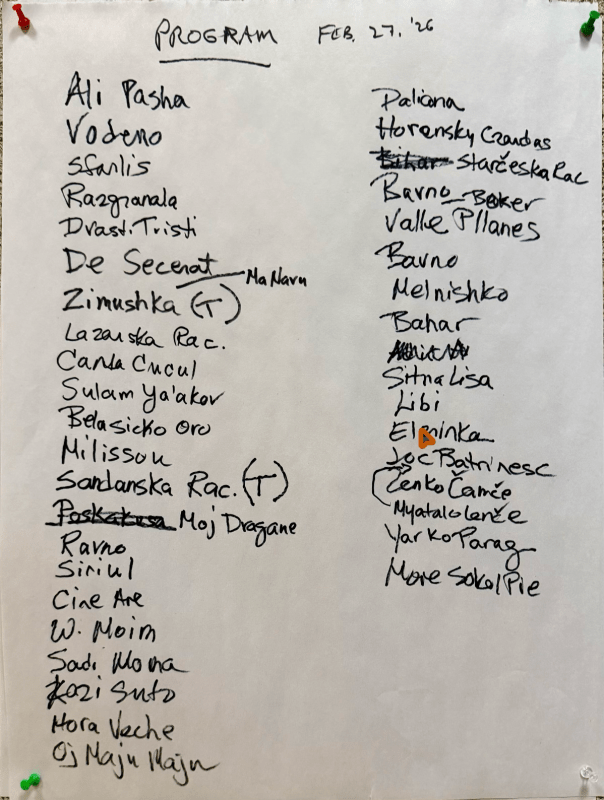 PROGRAM FEB. 27. '26
Ali Pasha
Vodeno
Sfanlis
Razgranala
Drasti Tristi
De Secerat
Ma Navu
Zimushka (T)
Lazarska Rac.
Canta Cucul
Sulam Ya'akov
Belasicko Oro
Milissou
Sandanska Rac. (T)
Poskakusa Moj Dragane
Ravno
Siriul
Cine Are
W. Moim
Sadi Moma
Kozi Suto
Hora Veche
Oj Maju Maju
Daliana
Horensky Czardas
Bihar Starčeska Rac
Bavno Beker
Valle Pllanes
Bavno
Melnishko
Bahar
Sitna Lisa
Libi
Eleninka
Joc Batrinesc
Zenko Čamče
Myatalo Lenče
Yarko Parag
More Sokol Pie